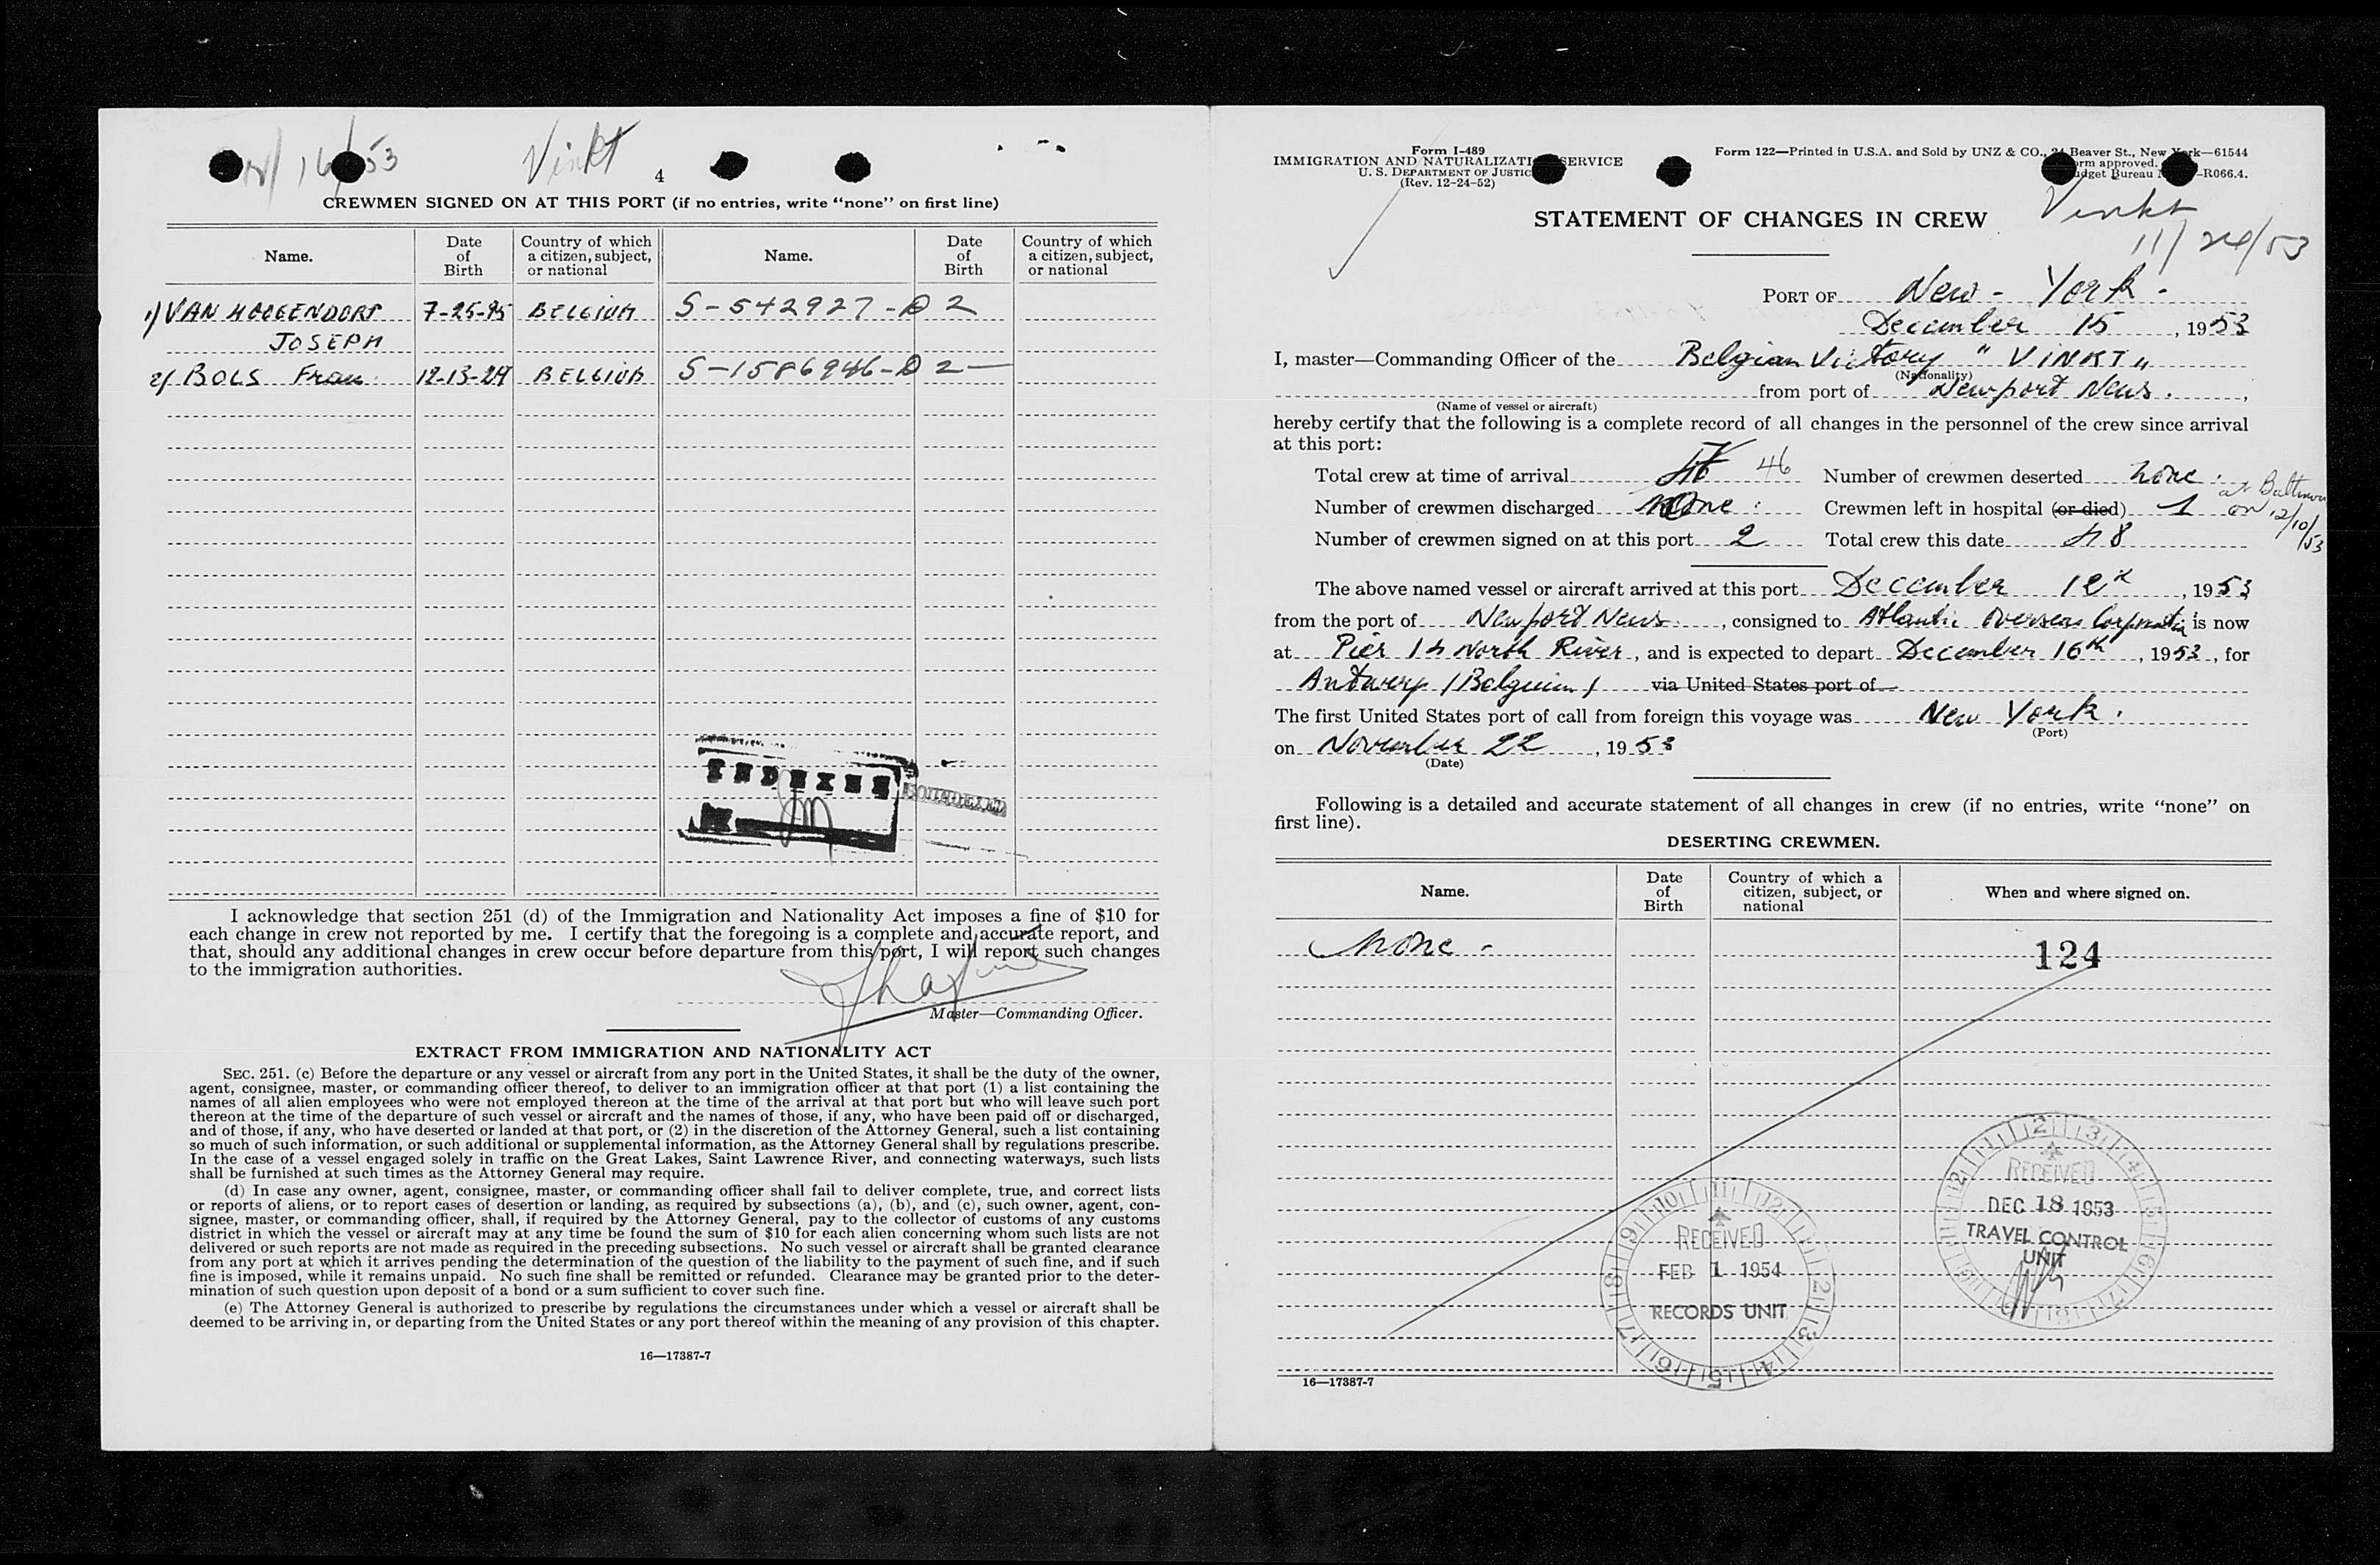 16/53
Vinkt
4
CREWMEN SIGNED ON AT THIS PORT (if no entries, write “none” on first line)
Name. Date of Birth Country of which a citizen, subject, or national Name. Date of Birth Country of which a citizen, subject, or national
1) VAN HOOGENDORP 7-25-25 BELGIUM S-542927-D 2
JOSEPH
2) BOLS Frans 12-13-24 BELGIUM S-1586946-D 2—
INDEXED
I acknowledge that section 251 (d) of the Immigration and Nationality Act imposes a fine of $10 for
each change in crew not reported by me. I certify that the foregoing is a complete and accurate report, and
that, should any additional changes in crew occur before departure from this port, I will report such changes
to the immigration authorities.
Master—Commanding Officer.
EXTRACT FROM IMMIGRATION AND NATIONALITY ACT
SEC. 251. (c) Before the departure or any vessel or aircraft from any port in the United States, it shall be the duty of the owner,
agent, consignee, master, or commanding officer thereof, to deliver to an immigration officer at that port (1) a list containing the
names of all alien employees who were not employed thereon at the time of the arrival at that port but who will leave such port
thereon at the time of the departure of such vessel or aircraft and the names of those, if any, who have been paid off or discharged,
and of those, if any, who have deserted or landed at that port, or (2) in the discretion of the Attorney General, such a list containing
so much of such information, or such additional or supplemental information, as the Attorney General shall by regulations prescribe.
In the case of a vessel engaged solely in traffic on the Great Lakes, Saint Lawrence River, and connecting waterways, such lists
shall be furnished at such times as the Attorney General may require.
(d) In case any owner, agent, consignee, master, or commanding officer shall fail to deliver complete, true, and correct lists
or reports of aliens, or to report cases of desertion or landing, as required by subsections (a), (b), and (c), such owner, agent, con-
signee, master, or commanding officer, shall, if required by the Attorney General, pay to the collector of customs of any customs
district in which the vessel or aircraft may at any time be found the sum of $10 for each alien concerning whom such lists are not
delivered or such reports are not made as required in the preceding subsections. No such vessel or aircraft shall be granted clearance
from any port at which it arrives pending the determination of the question of the liability to the payment of such fine, and if such
fine is imposed, while it remains unpaid. No such fine shall be remitted or refunded. Clearance may be granted prior to the deter-
mination of such question upon deposit of a bond or a sum sufficient to cover such fine.
(e) The Attorney General is authorized to prescribe by regulations the circumstances under which a vessel or aircraft shall be
deemed to be arriving in, or departing from the United States or any port thereof within the meaning of any provision of this chapter.
16—17387-7
Form I-489
IMMIGRATION AND NATURALIZATION SERVICE
U. S. DEPARTMENT OF JUSTICE
(Rev. 12-24-52)
Form 122—Printed in U.S.A. and Sold by UNZ & CO., 24 Beaver St., New York—61544
Form approved.
Budget Bureau -R066.4.
Vinkt
11/24/53
STATEMENT OF CHANGES IN CREW
PORT OF New-York-
December 15, 1953
I, master—Commanding Officer of the Belgian Victory "VINKT"
(Nationality)
from port of Newport News.,
(Name of vessel or aircraft)
hereby certify that the following is a complete record of all changes in the personnel of the crew since arrival
at this port:
Total crew at time of arrival 46 Number of crewmen deserted none.
Number of crewmen discharged none Crewmen left in hospital (or died) 1 at Baltimore on 12/10/53
Number of crewmen signed on at this port 2 Total crew this date 48
The above named vessel or aircraft arrived at this port December 12th, 1953
from the port of Newport News, consigned to Atlantic Overseas Corporation is now
at Pier 14 North River, and is expected to depart December 16th, 1953, for
Antwerp (Belgium) via United States port of
The first United States port of call from foreign this voyage was New York.
(Port)
on November 22, 1953
(Date)
Following is a detailed and accurate statement of all changes in crew (if no entries, write “none” on
first line).
DESERTING CREWMEN.
Name. Date of Birth Country of which a citizen, subject, or national When and where signed on.
None -
124
RECEIVED
DEC 18 1953
TRAVEL CONTROL
UNIT
RECEIVED
FEB 1 1954
RECORDS UNIT
16—17387-7